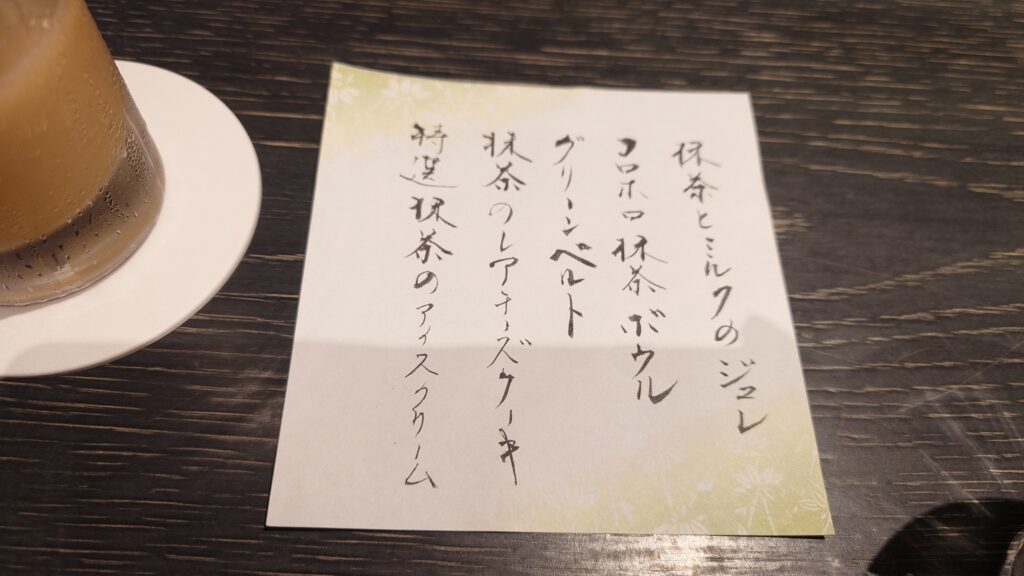 抹茶とミルクのジュレ
コロホロ抹茶ボウル
グリーンベルト
抹茶のレアチーズケーキ
特選抹茶のアイスクリーム